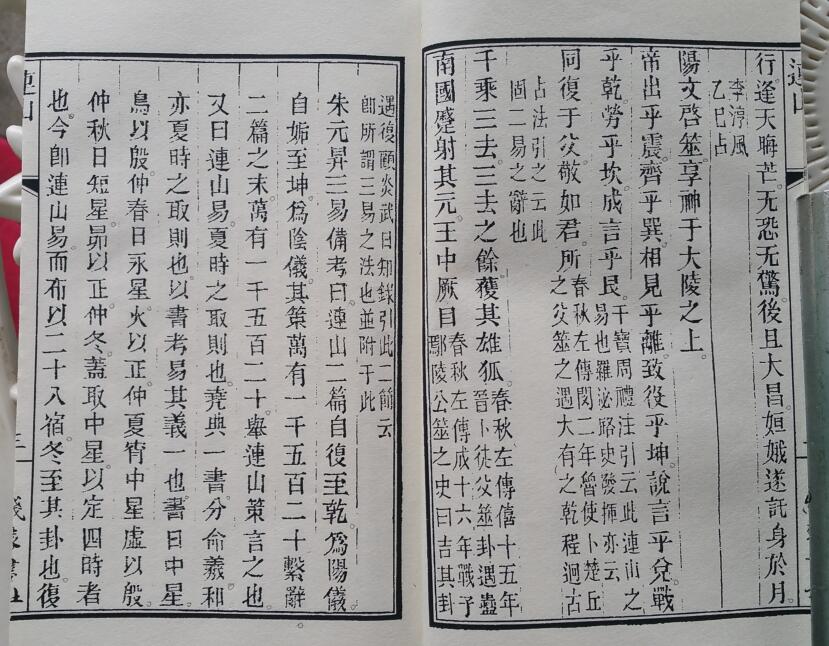 行逢天晦芒无恐无驚後且大昌姮娥遂託身於月
李淳風
乙巳占
陽文啓筮享神于大陵之上
帝出乎震齊乎巽相見乎離致役乎坤說言乎兌戰
乎乾勞乎坎成言乎艮
干寶周禮注引云此連山之
易也羅泌路史發揮亦云
同復于父敬如君所
春秋左傳閔二年曾使卜楚丘
之父筮之遇大有之乾程迥古
占法引之云此
固二易之辭也
千乘三去三去之餘獲其雄狐
春秋左傳僖十五年
晉卜徒父筮卦遇蠱
南國蹙射其元王中厥目
春秋左傳成十六年戰于
鄢陵公筮之史曰吉其卦
連山
遇復顧炎武日知錄引此二節云
卽所謂三易之法也並附于此
朱元昇三易備考曰連山二篇自復至乾爲陽儀
自姤至坤爲陰儀其策萬有一千五百二十繫辭
二篇之末萬有一千五百二十舉連山策言之也
又曰連山易夏時之取則也堯典一書分命羲和
亦夏時之取則也以書考易其義一也書日中星
鳥以殷仲春日永星火以正仲夏宵中星虛以殷
仲秋日短星昴以正仲冬蓋取中星以定四時者
也今卽連山易而布以二十八宿冬至其卦也復
連山
三